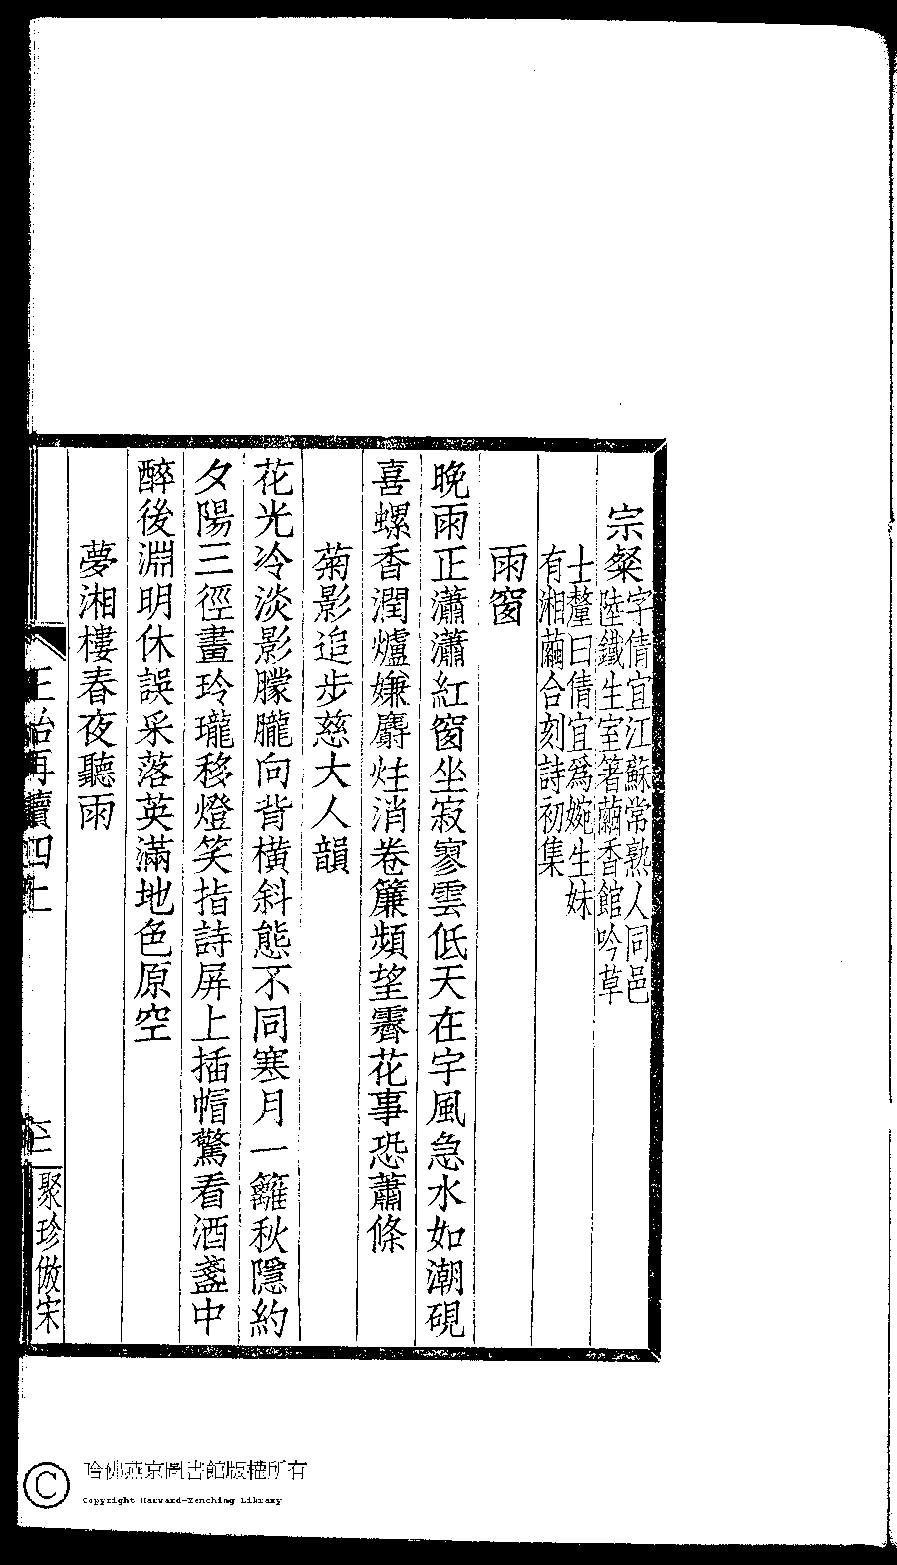 宗粲
字倩宜江蘇常熟人同邑
陸鐵生室箸繭香館吟草
士釐曰倩宜爲婉生妹
有湘繭合刻詩初集
雨窗
晚雨正瀟瀟紅窗坐寂寥雲低天在宇風急水如潮硯
喜螺香潤爐嫌麝炷消卷簾頻望霽花事恐蕭條
菊影追步慈大人韻
花光冷淡影朦朧向背橫斜態不同寒月一籬秋隱約
夕陽三徑畫玲瓏移燈笑指詩屏上插帽驚看酒盞中
醉後淵明休誤采落英滿地色原空
夢湘樓春夜聽雨
再續四上
三
聚珍倣宋
哈佛燕京圖書館版權所有
Copyright Harvard-Yenching Library